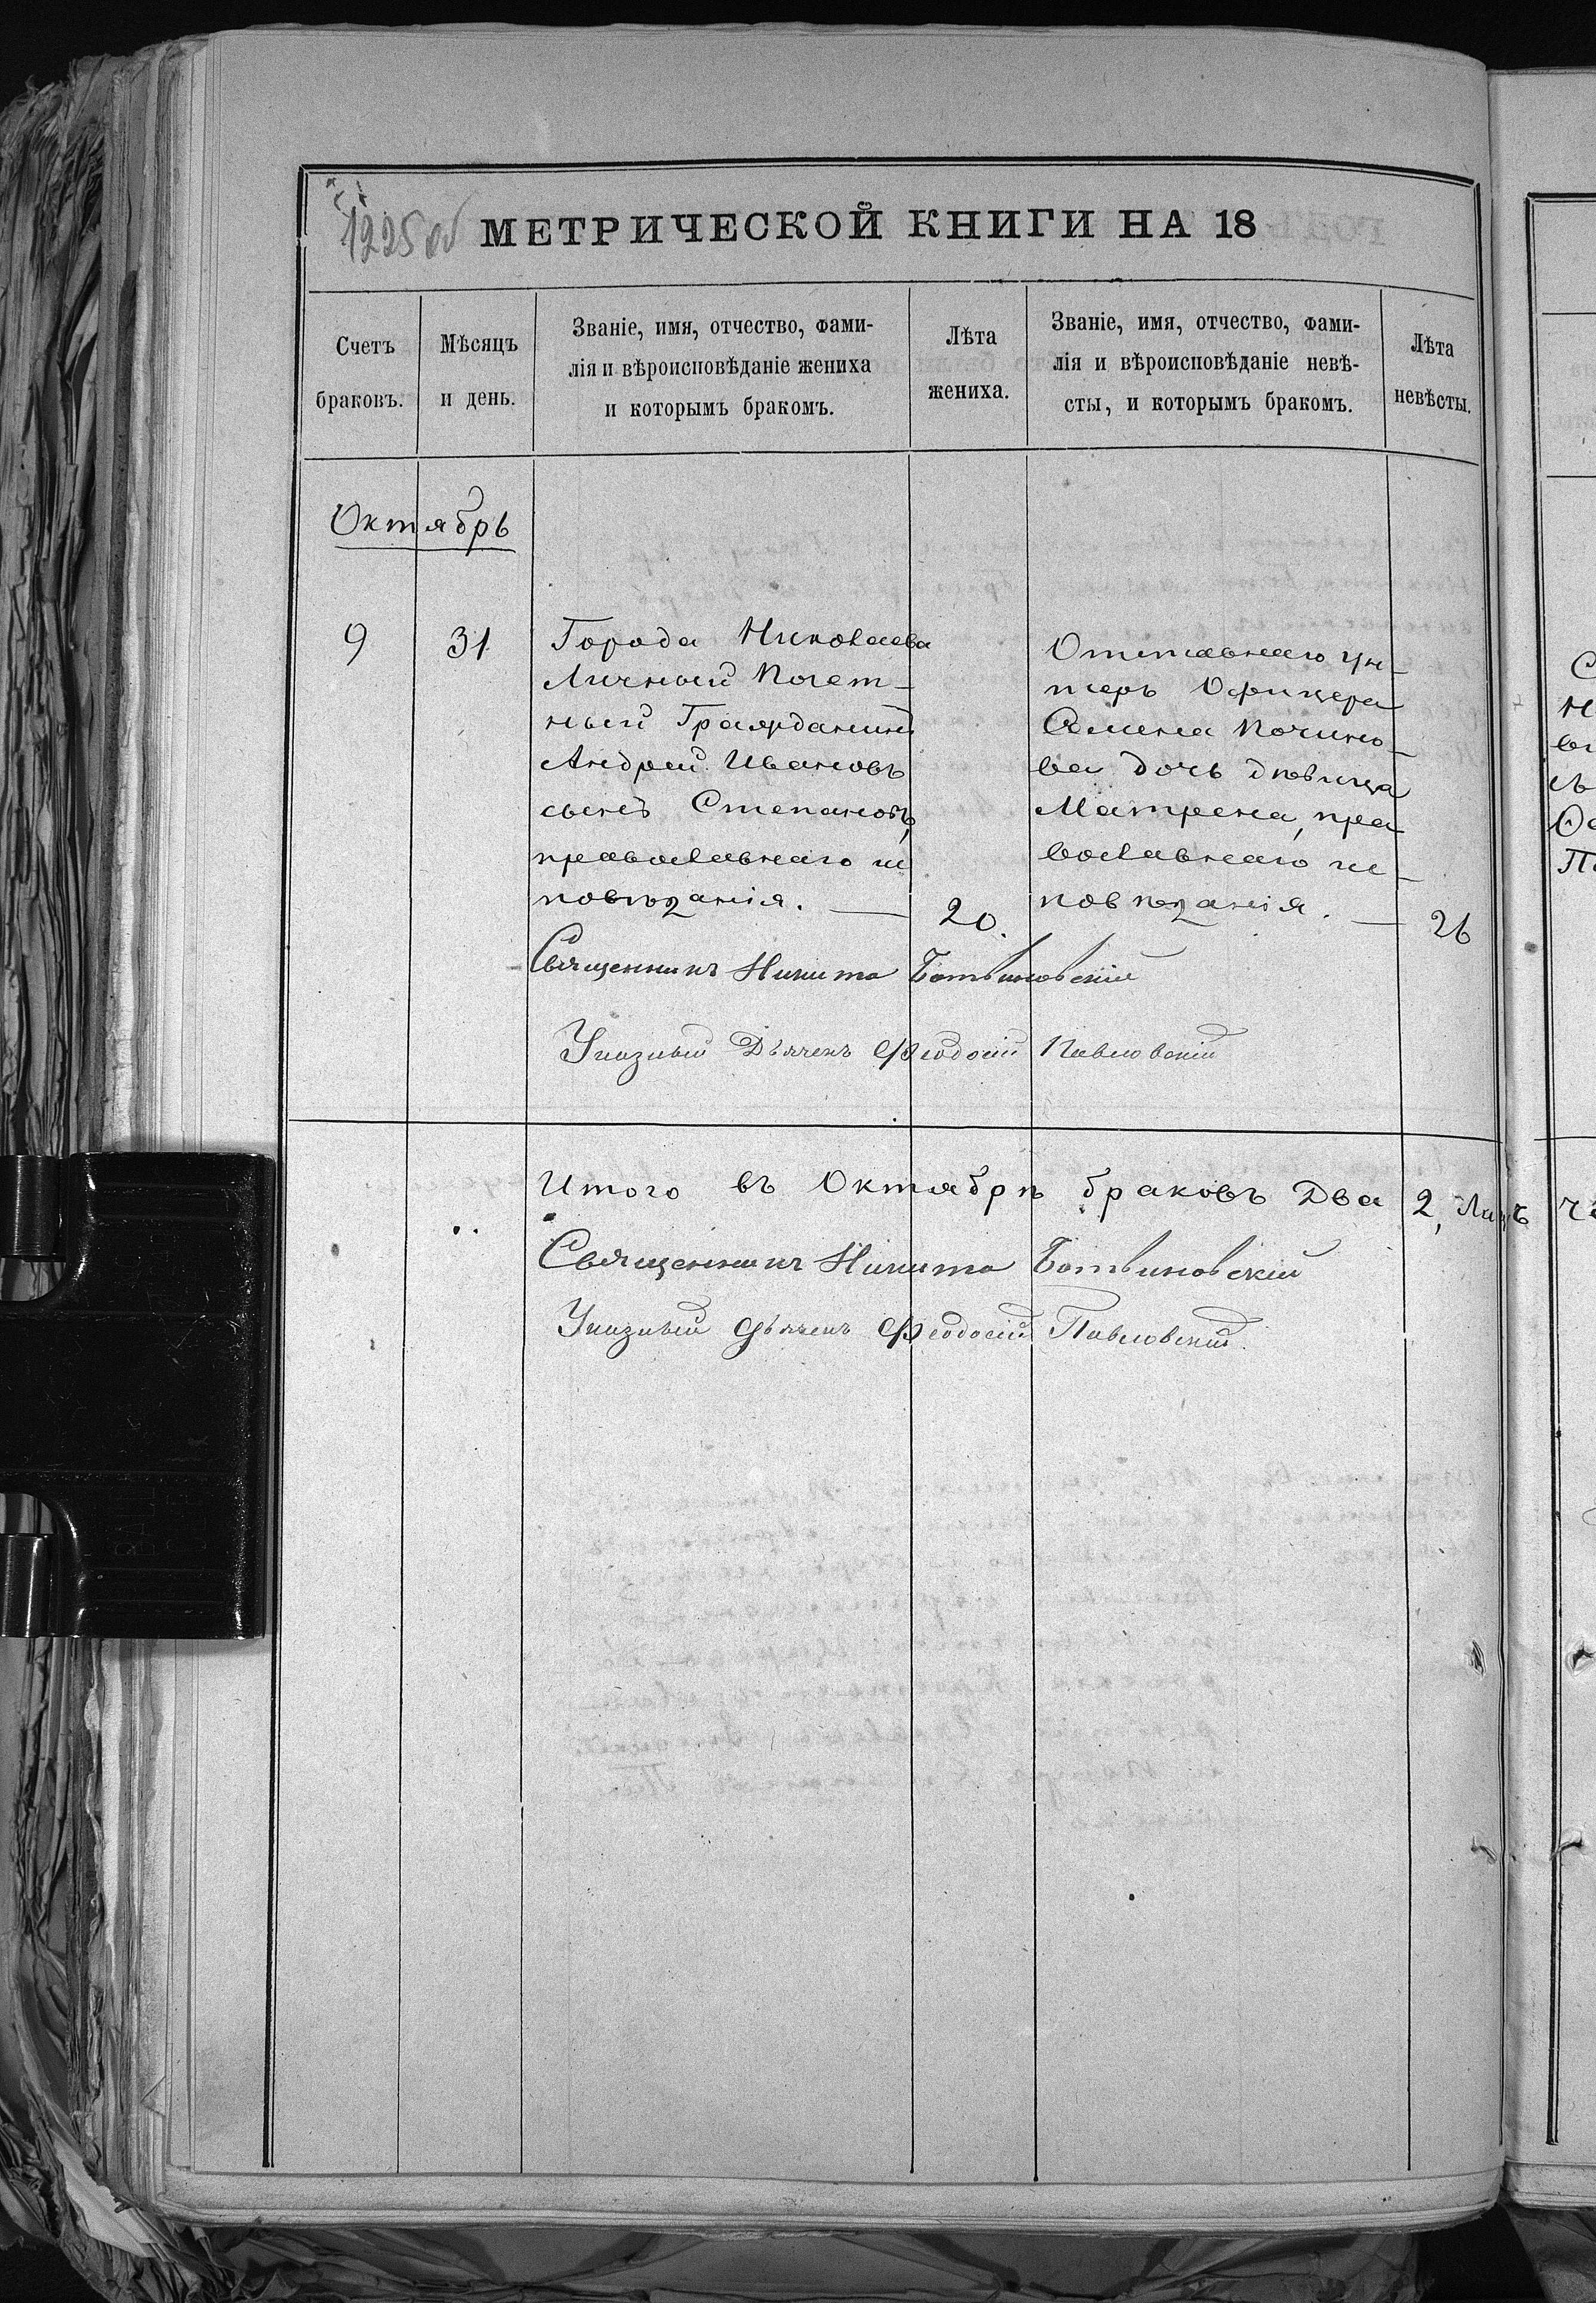 1225 об
МЕТРИЧЕСКОЙ КНИГИ НА 18
Счетъ браковъ.
Мѣсяцъ и день.
Званіе, имя, отчество, фами-
лія и вѣроисповѣданіе жениха
и которымъ бракомъ.
Лѣта
жениха.
Званіе, имя, отчество, фами-
лія и вѣроисповѣданіе невѣ-
сты, и которымъ бракомъ.
Лѣта
невѣсты.
Октябрь
9
31
Города Николаева
Личный Почет-
ный Гражданинъ
Андрей Ивановъ
сынъ Степановъ,
православнаго ис
повѣданія. —
20.
Отставнаго ун-
теръ Офицера
Семена Почино-
ва дочь дѣвица
Матрена, пра
вославнаго ис-
повѣданія. —
26
Священникъ Никита Ботвиновскій
Указный Дьячекъ Феодосій Павловскій
Итого въ Октябрѣ браковъ Два 2, Лицъ
Священникъ Никита Ботвиновскій
Указный Дьячекъ Феодосій Павловскій.